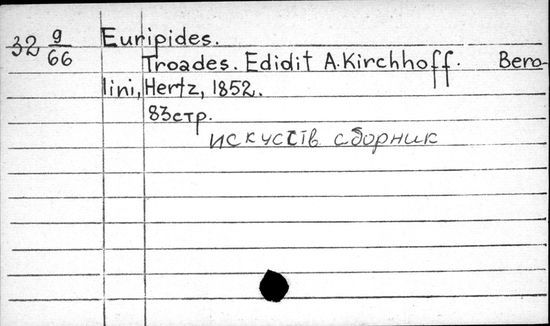 32 9/66 Euripides.
Troades. Edidit A. Kirchhoff. Bero-
lini, Hertz, 1852.
83стр.
искусств сборник